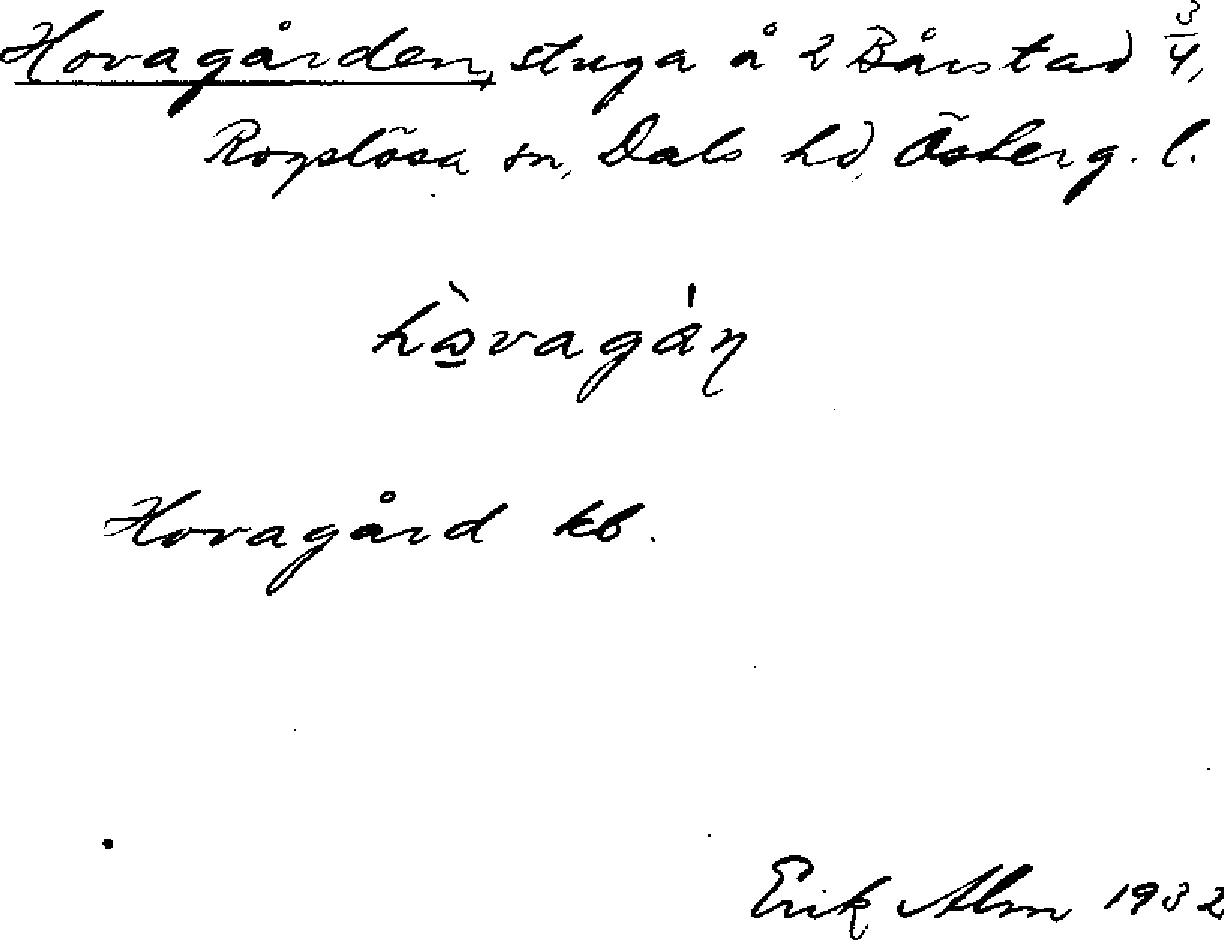 Hovagården, stuga å 2 Bårstad 3/4,
Rogslösa sn, Dals hd, Österg. l.
hòvagán
Hovagård kb.
Erik Alm 1932